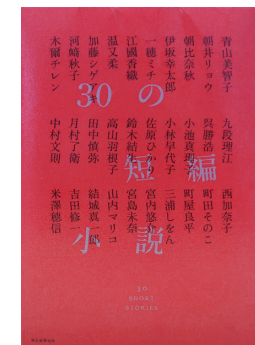 30の
短編
小説
青山美智子
朝井リョウ
朝比奈秋
伊坂幸太郎
一穂ミチ
江國香織
温又柔
加藤シゲアキ
河﨑秋子
木爾チレン
九段理江
呉勝浩
小池真理子
小林早代子
佐原ひかり
鈴木結生
高山羽根子
田中慎弥
月村了衛
中村文則
西加奈子
町田そのこ
町屋良平
三浦しをん
宮内悠介
宮島未奈
山内マリコ
結城真一郎
吉田修一
米澤穂信
30
SHORT
STORIES